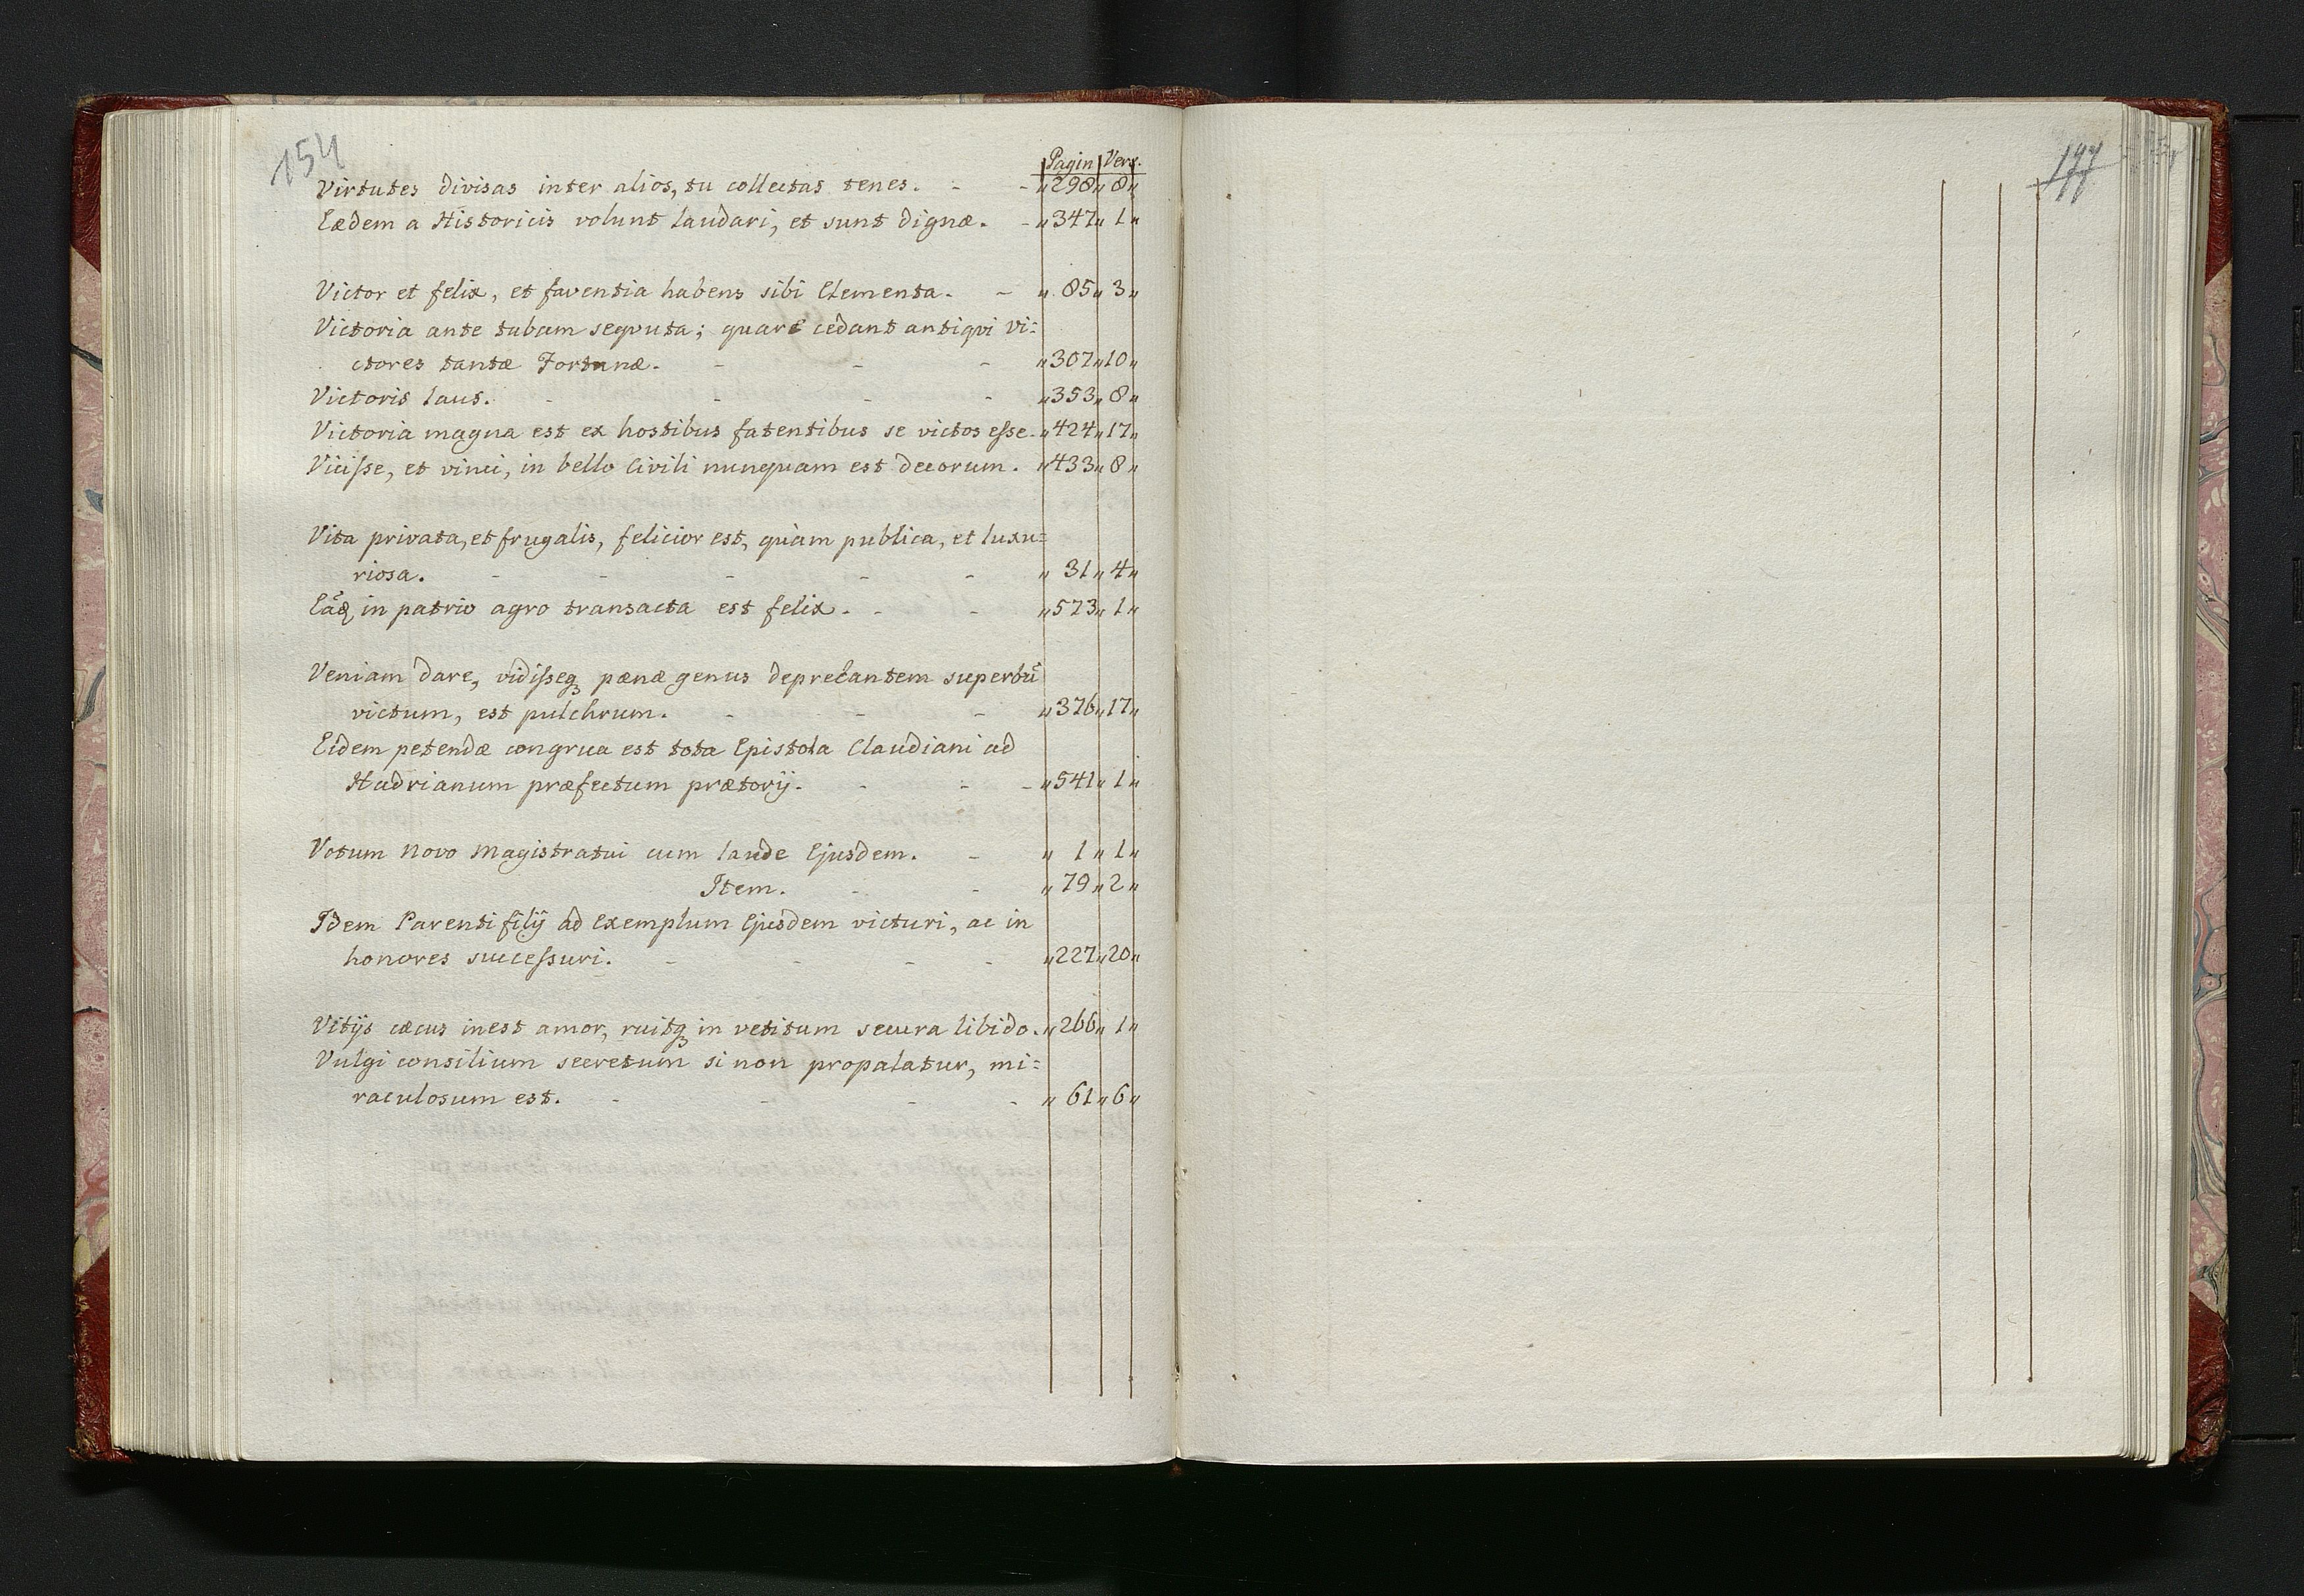 154
Pagin Vers.
Virtutes divisas inter alios, tu collectas tenes. - - „298„ 8„
Eædem a Historicis volunt laudari, et sunt dignæ. - „347„ 1„
Victor et felix, et faventia habens sibi Elementa. - „ 85„ 3„
Victoria ante tubam seqvuta; quare cedant antiqvi vi=
ctores tantæ Fortunæ. - - - „307„10„
Victoris laus. - - - - „353„ 8„
Victoria magna est ex hostibus fatentibus se victos esse. „424„17„
Vicisse, et vinci, in bello Civili nunquam est decorum. „433„ 8„
Vita privata, et frugalis, felicior est, quàm publica, et luxu=
riosa. - - - - - „ 31„ 4„
Eaq, in patrio agro transacta est felix. - - „573„ 1„
Veniam dare, vidisseq, pænæ genus deprecantem superbū
victum, est pulchrum. - - - „376„17„
Eidem petendæ congrua est tota Epistola Claudiani ad
Hadrianum præfectum prætorij. - - - „541„ 1„
Votum Novo Magistratui cum laude Ejusdem. - „ 1 „ 1„
Item. - - „ 79„ 2„
Idem Parenti filij ad Exemplum Ejusdem victuri, ac in
honores successuri. - - - - „227„20„
Vitijs cæcus inest amor, ruitq, in vetitum secura libido. „266„ 1„
Vulgi consilium secretum si non propalatur, mi=
raculosum est. - - - - „ 61„ 6„